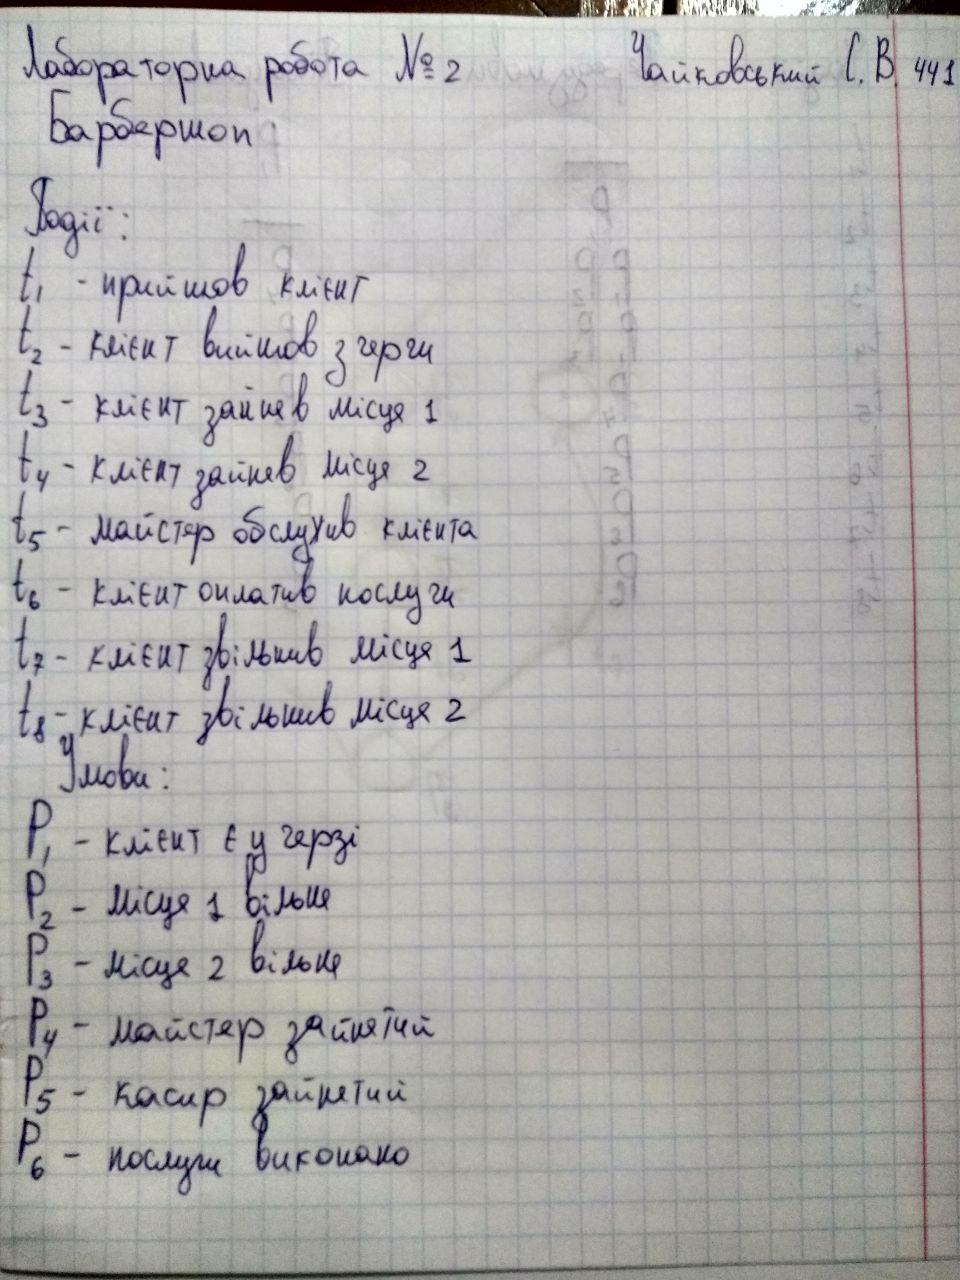 Лабораторна робота №2 Чайковський С. В. 441
Барбершоп
Події:
t1 - прийшов клієнт
t2 - клієнт вийшов з черги
t3 - клієнт зайняв місце 1
t4 - клієнт зайняв місце 2
t5 - майстер обслужив клієнта
t6 - клієнт оплатив послуги
t7 - клієнт звільнив місце 1
t8 - клієнт звільнив місце 2
Умови:
P1 - клієнт є у черзі
P2 - місце 1 вільне
P3 - місце 2 вільне
P4 - майстер зайнятий
P5 - касир зайнятий
P6 - послуги виконано